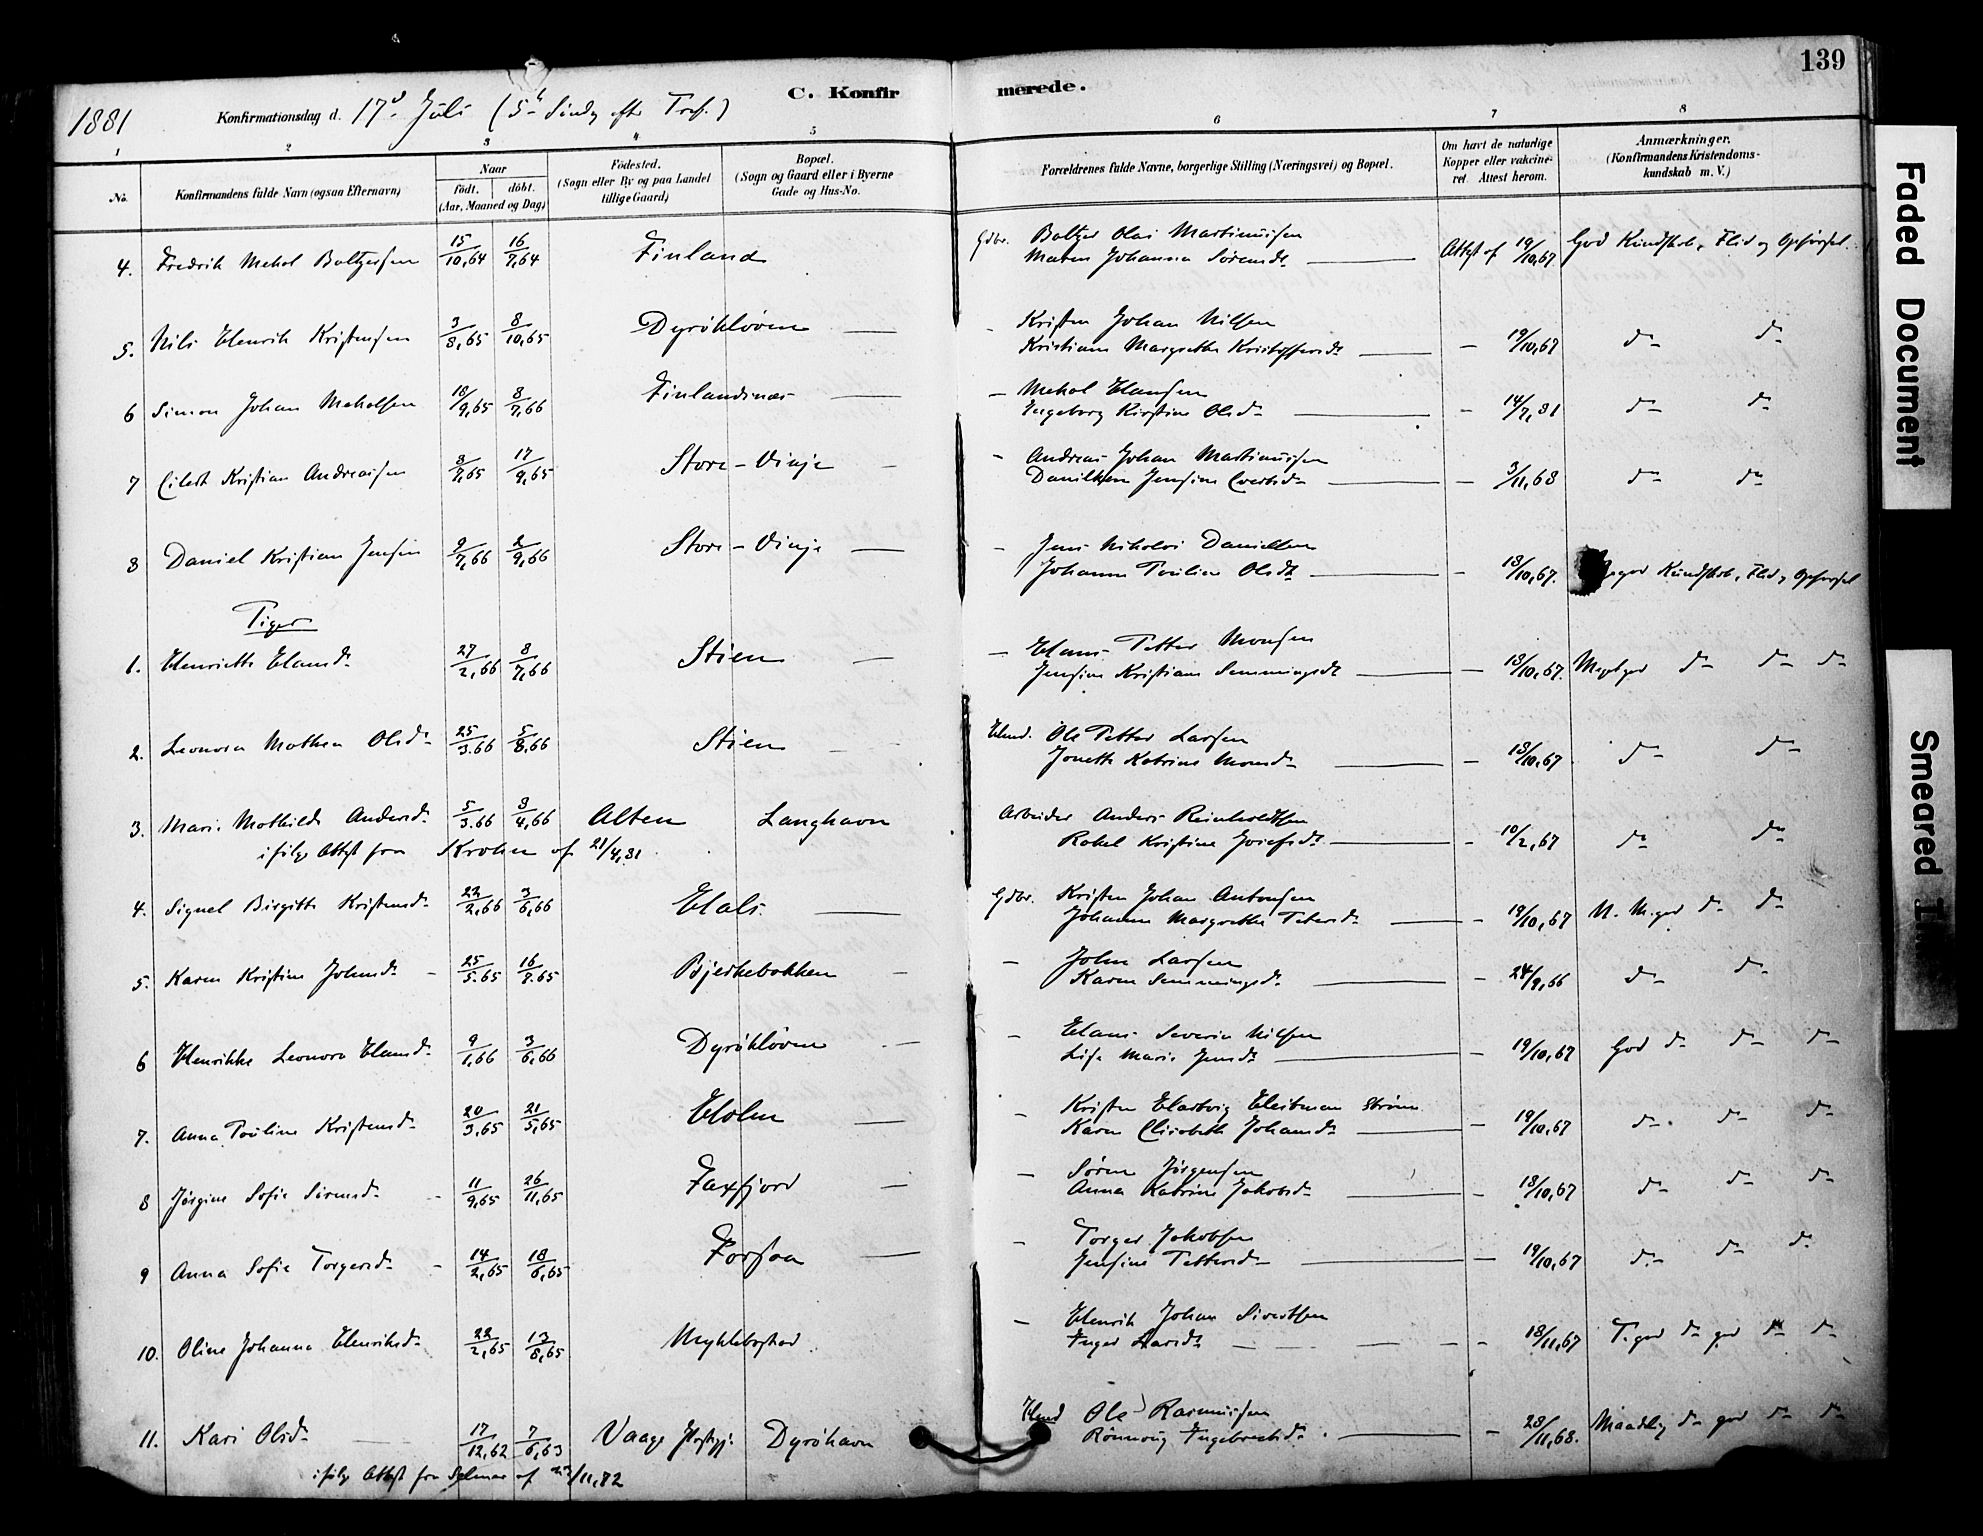 139
C. Konfirmerede.
1881 Konfirmationsdag d. 17de Juli (5te Søndag efter Tref.)
1 2 3 4 5 6 7 8
No.
Konfirmandens fulde Navn (ogsaa Efternavn)
Naar
födt. döbt.
(Aar, Maaned og Dag)
Födested.
(Sogn eller By og paa Landet
tillige Gaard)
Bopæl.
(Sogn og Gaard eller i Byerne
Gade og Hus-No.
Forældrenes fulde Navne, borgerlige Stilling (Næringsvei) og Bopæl.
Om havt de naturlige
Kopper eller vakcine-
ret. Attest herom.
Anmærkninger.
(Konfirmandens Kristendoms-
kundskab m. V.)
4. Fredrik Mekal Baltzersen 15/10,64 16/7,64 Finland Gdbr. Baltzer Olai Martinussen
Maren Johanna Sørensdr Attest af 19/10,67 God Kundskab, Flid og Opførsel
5. Nils Henrik Kristensen 3/8,65 8/10,65 Dyrökløven — Kristen Johan Nilsen
Kristiane Margrethe Kristoffersdr — 19/10,67 do do
6 Simon Johan Mekalsen 18/9,65 8/7,66 Finlandsnæs — Mekal Hansen
Ingeborg Kirstine Olsdr — 14/7,81 do do
7 Eilert Kristian Andreassen 8/7,65 17/9,65 Store-Vinje — Andreas Johan Martinussen
Danilken Jensine Evertsdr — 3/11,68 do do
8 Daniel Kristian Jensen 9/7,66 2/9,66 Store-Vinje — Jens Nikolai Danielsen
Johanna Pauline Olsdr — 18/10,67. god Kundskab, Flid, Opførsel
Piger
1. Henriette Hansdr 27/2,66 8/7,66 Stien — Hans Petter Monsen
Jensine Kristiane Hemmingsdr — 18/10,67. Megetgod do do do
2. Leonora Mathea Olsdr 25/3.66 5/8,66 Stien Hmd. Ole Petter Larsen
Jonette Katrine Monsdr — 18/10,67 do do
3. Marie Mathilde Andersdr 5/3.66 8/4,66 Alten Langhavn Arbeider Anders Reinholdtsen
Rakel Kristine Josefsdr — 10/2,67 do do
ifølge Attest fra Krohn af 21/4,81
4. Signel Birgitte Kristensdr 22/2,66 3/6,66 Hals Gdbr. Kristen Johan Antonsen
Johanna Margrethe Petersdr — 19/10,67 N. M.god do do
5. Karen Kristine Johnsdr 25/5.65 16/7.65 Bjerkebakken — John Larsen
Karen Hemmingsd. — 24/9,66 do do
6 Henrikke Leonora Hansdr 9/1,66 3/6,66 Dyrökløven — Hans Severin Nilsen
Lise Marie Jensdr — 19/10,67 God do do do
7. Anna Pauline Kristensdr 20/3,65 21/5,65 Holm — Kristen Hartvig Heitman Strøm
Karen Elisabeth Johansdr — 19/10,67 do do do
8 Jørgine Sofie Sørensdr 11/9,65 26/11,65 Faxfjord — Søren Jørgensen
Anna Katrine Jakobsdr — 18/10,67 do do do
9 Anna Sofie Torgersdr 14/2,65 18/6,65 Forsaa — Torger Jakobsen
Jensine Pettersdr — 19/10,67 do do do
10. Oline Johanna Henriksdr 22/2,65 13/8,65 Myklebostad — Henrik Johan Sivertsen
Inger Larsdr — 18/11,67 T. god do god do do
11. Kari Olsdr 17/12,62 7/6,63 Vaage Dyröhavn Hmd Ole Rasmussen
Rönnoug Ingebretsdr — 28/11,68. Maadelig do god do do
ifølge Attest fra
Faded Document
Smeared